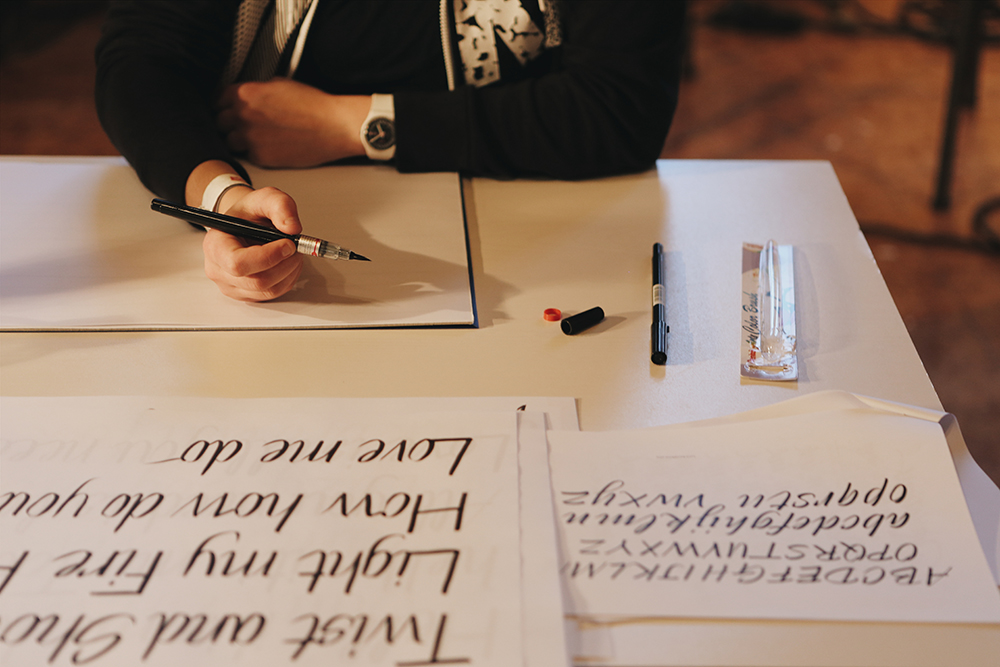 Twist and Sho
Light my Fire
How how do you
Love me do
ABCDEFGHIJKLM
OPQRSTUVWXYZ
abcdefghijklmn
opqrstu vwxyz
Color Brush